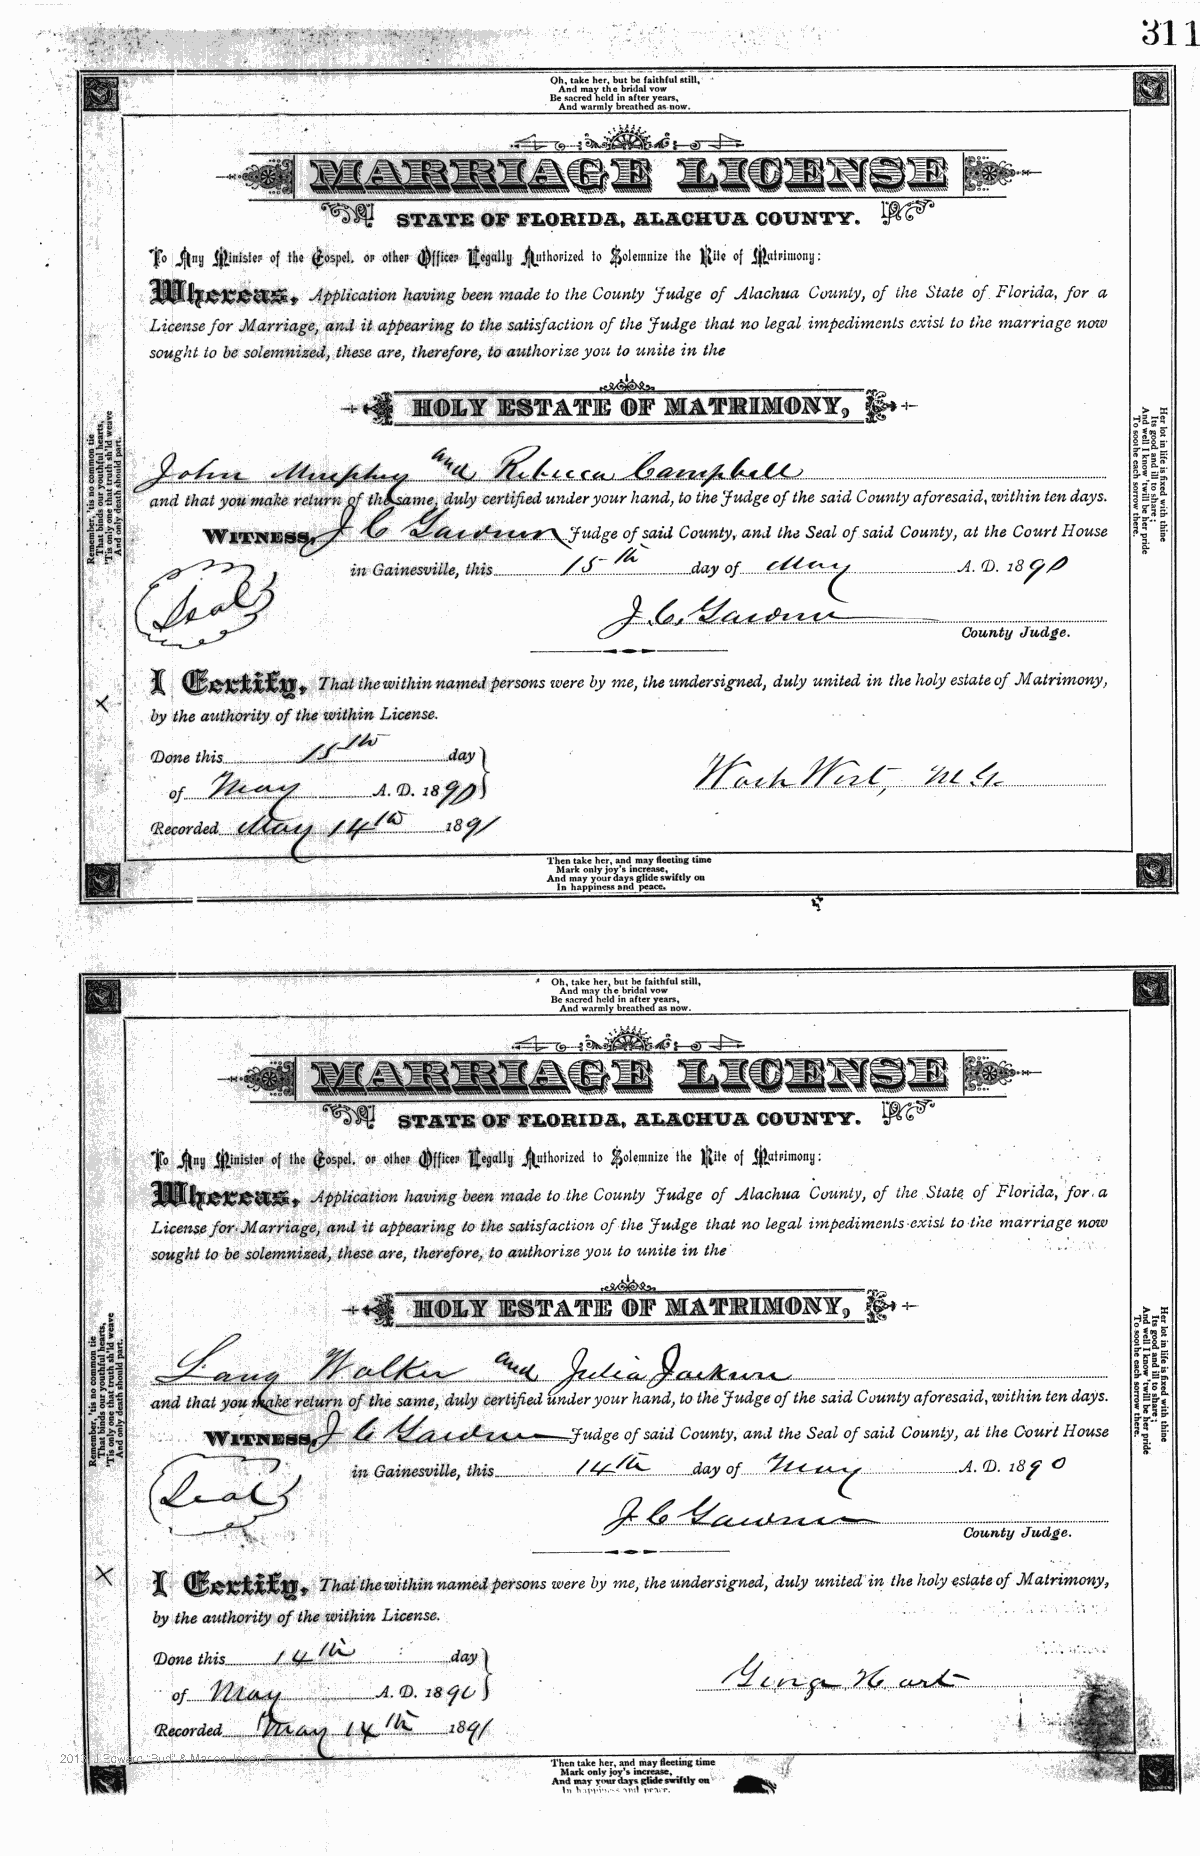 311
Oh, take her, but be faithful still,
And may the bridal vow
Be sacred held in after years,
And warmly breathed as now.
MARRIAGE LICENSE
STATE OF FLORIDA, ALACHUA COUNTY.
To Any Minister of the Gospel, or other Officer Legally Authorized to Solemnize the Rite of Matrimony:
Whereas, Application having been made to the County Judge of Alachua County, of the State of Florida, for a
License for Marriage, and it appearing to the satisfaction of the Judge that no legal impediments exist to the marriage now
sought to be solemnized, these are, therefore, to authorize you to unite in the
HOLY ESTATE OF MATRIMONY,
John Murphy and Rebecca Campbell
and that you make return of the same, duly certified under your hand, to the Judge of the said County aforesaid, within ten days.
WITNESS, J C Gardner Judge of said County, and the Seal of said County, at the Court House
in Gainesville, this 15th day of May A. D. 1890
Seal
J. C. Gardner
County Judge.
I Certify, That the within named persons were by me, the undersigned, duly united in the holy estate of Matrimony,
by the authority of the within License.
Done this 15th day
of May A. D. 1890
Wash West, M.G.
Recorded May 14th 1891
Remember, 'tis no common tie
That binds your youthful hearts,
'Tis only one that truth sh'ld weave
And only death should part.
Her lot in life is fixed with thine
Its good and ill to share;
And well I know 'twill be her pride
To soothe each sorrow there.
Then take her, and may fleeting time
Mark only joy's increase,
And may your days glide swiftly on
In happiness and peace.
Oh, take her, but be faithful still,
And may the bridal vow
Be sacred held in after years,
And warmly breathed as now.
MARRIAGE LICENSE
STATE OF FLORIDA, ALACHUA COUNTY.
To Any Minister of the Gospel, or other Officer Legally Authorized to Solemnize the Rite of Matrimony:
Whereas, Application having been made to the County Judge of Alachua County, of the State of Florida, for a
License for Marriage, and it appearing to the satisfaction of the Judge that no legal impediments exist to the marriage now
sought to be solemnized, these are, therefore, to authorize you to unite in the
HOLY ESTATE OF MATRIMONY,
Lang Walker and Julia Jackson
and that you make return of the same, duly certified under your hand, to the Judge of the said County aforesaid, within ten days.
WITNESS, J C Gardner Judge of said County, and the Seal of said County, at the Court House
in Gainesville, this 14th day of May A. D. 1890
Seal
J C Gardner
County Judge.
I Certify, That the within named persons were by me, the undersigned, duly united in the holy estate of Matrimony,
by the authority of the within License.
Done this 14th day
of May A. D. 1890
George Hart
Recorded May 14th 1891
Remember, 'tis no common tie
That binds your youthful hearts,
'Tis only one that truth sh'ld weave
And only death should part.
Her lot in life is fixed with thine
Its good and ill to share;
And well I know 'twill be her pride
To soothe each sorrow there.
Then take her, and may fleeting time
Mark only joy's increase,
And may your days glide swiftly on
In happiness and peace.